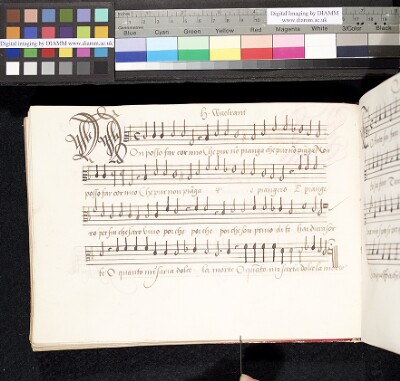 Digital imaging by DIAMM
www.diamm.ac.uk
Digital imaging by DIAMM
www.diamm.ac.uk
Blue Cyan Green Yellow Red Magenta White 3/Color Black
H. Waelrant
Non posso far cor mio Che piu no pianga che piu no piãga Non
posso far cor mio Che piu non piãga E piangero E piange
ro per fin che saro vivo poi che poi che poi che son privo di te
te O quanto mi saria dolce la morte O quãto mi saria dolce la morte